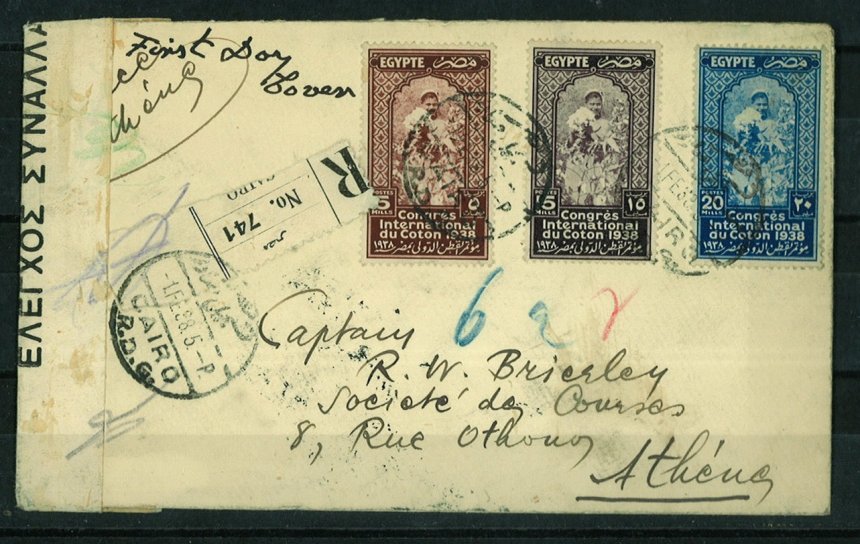 ΕΛΕΓΧΟΣ ΣΥΝΑΛΛΑ
First Day
Cover
R
CAIRO
No. 741
مصر
EGYPTE مصر
POSTES
5 ٥
MILLS
Congrès
International
du Coton 1938
مؤتمر القطن الدولى بمصر ١٩٣٨
EGYPTE مصر
POSTES
15 ١٥
MILLS
Congrès
International
du Coton 1938
مؤتمر القطن الدولى بمصر ١٩٣٨
EGYPTE مصر
POSTES
20 ٢٠
MILLS
Congrès
International
du Coton 1938
مؤتمر القطن الدولى بمصر ١٩٣٨
-1FE38.5-P
CAIRO
R.D.G.
6 2 2
Captain
R. W. Brierley
Société des Courses
8, Rue Othonos
Athénes